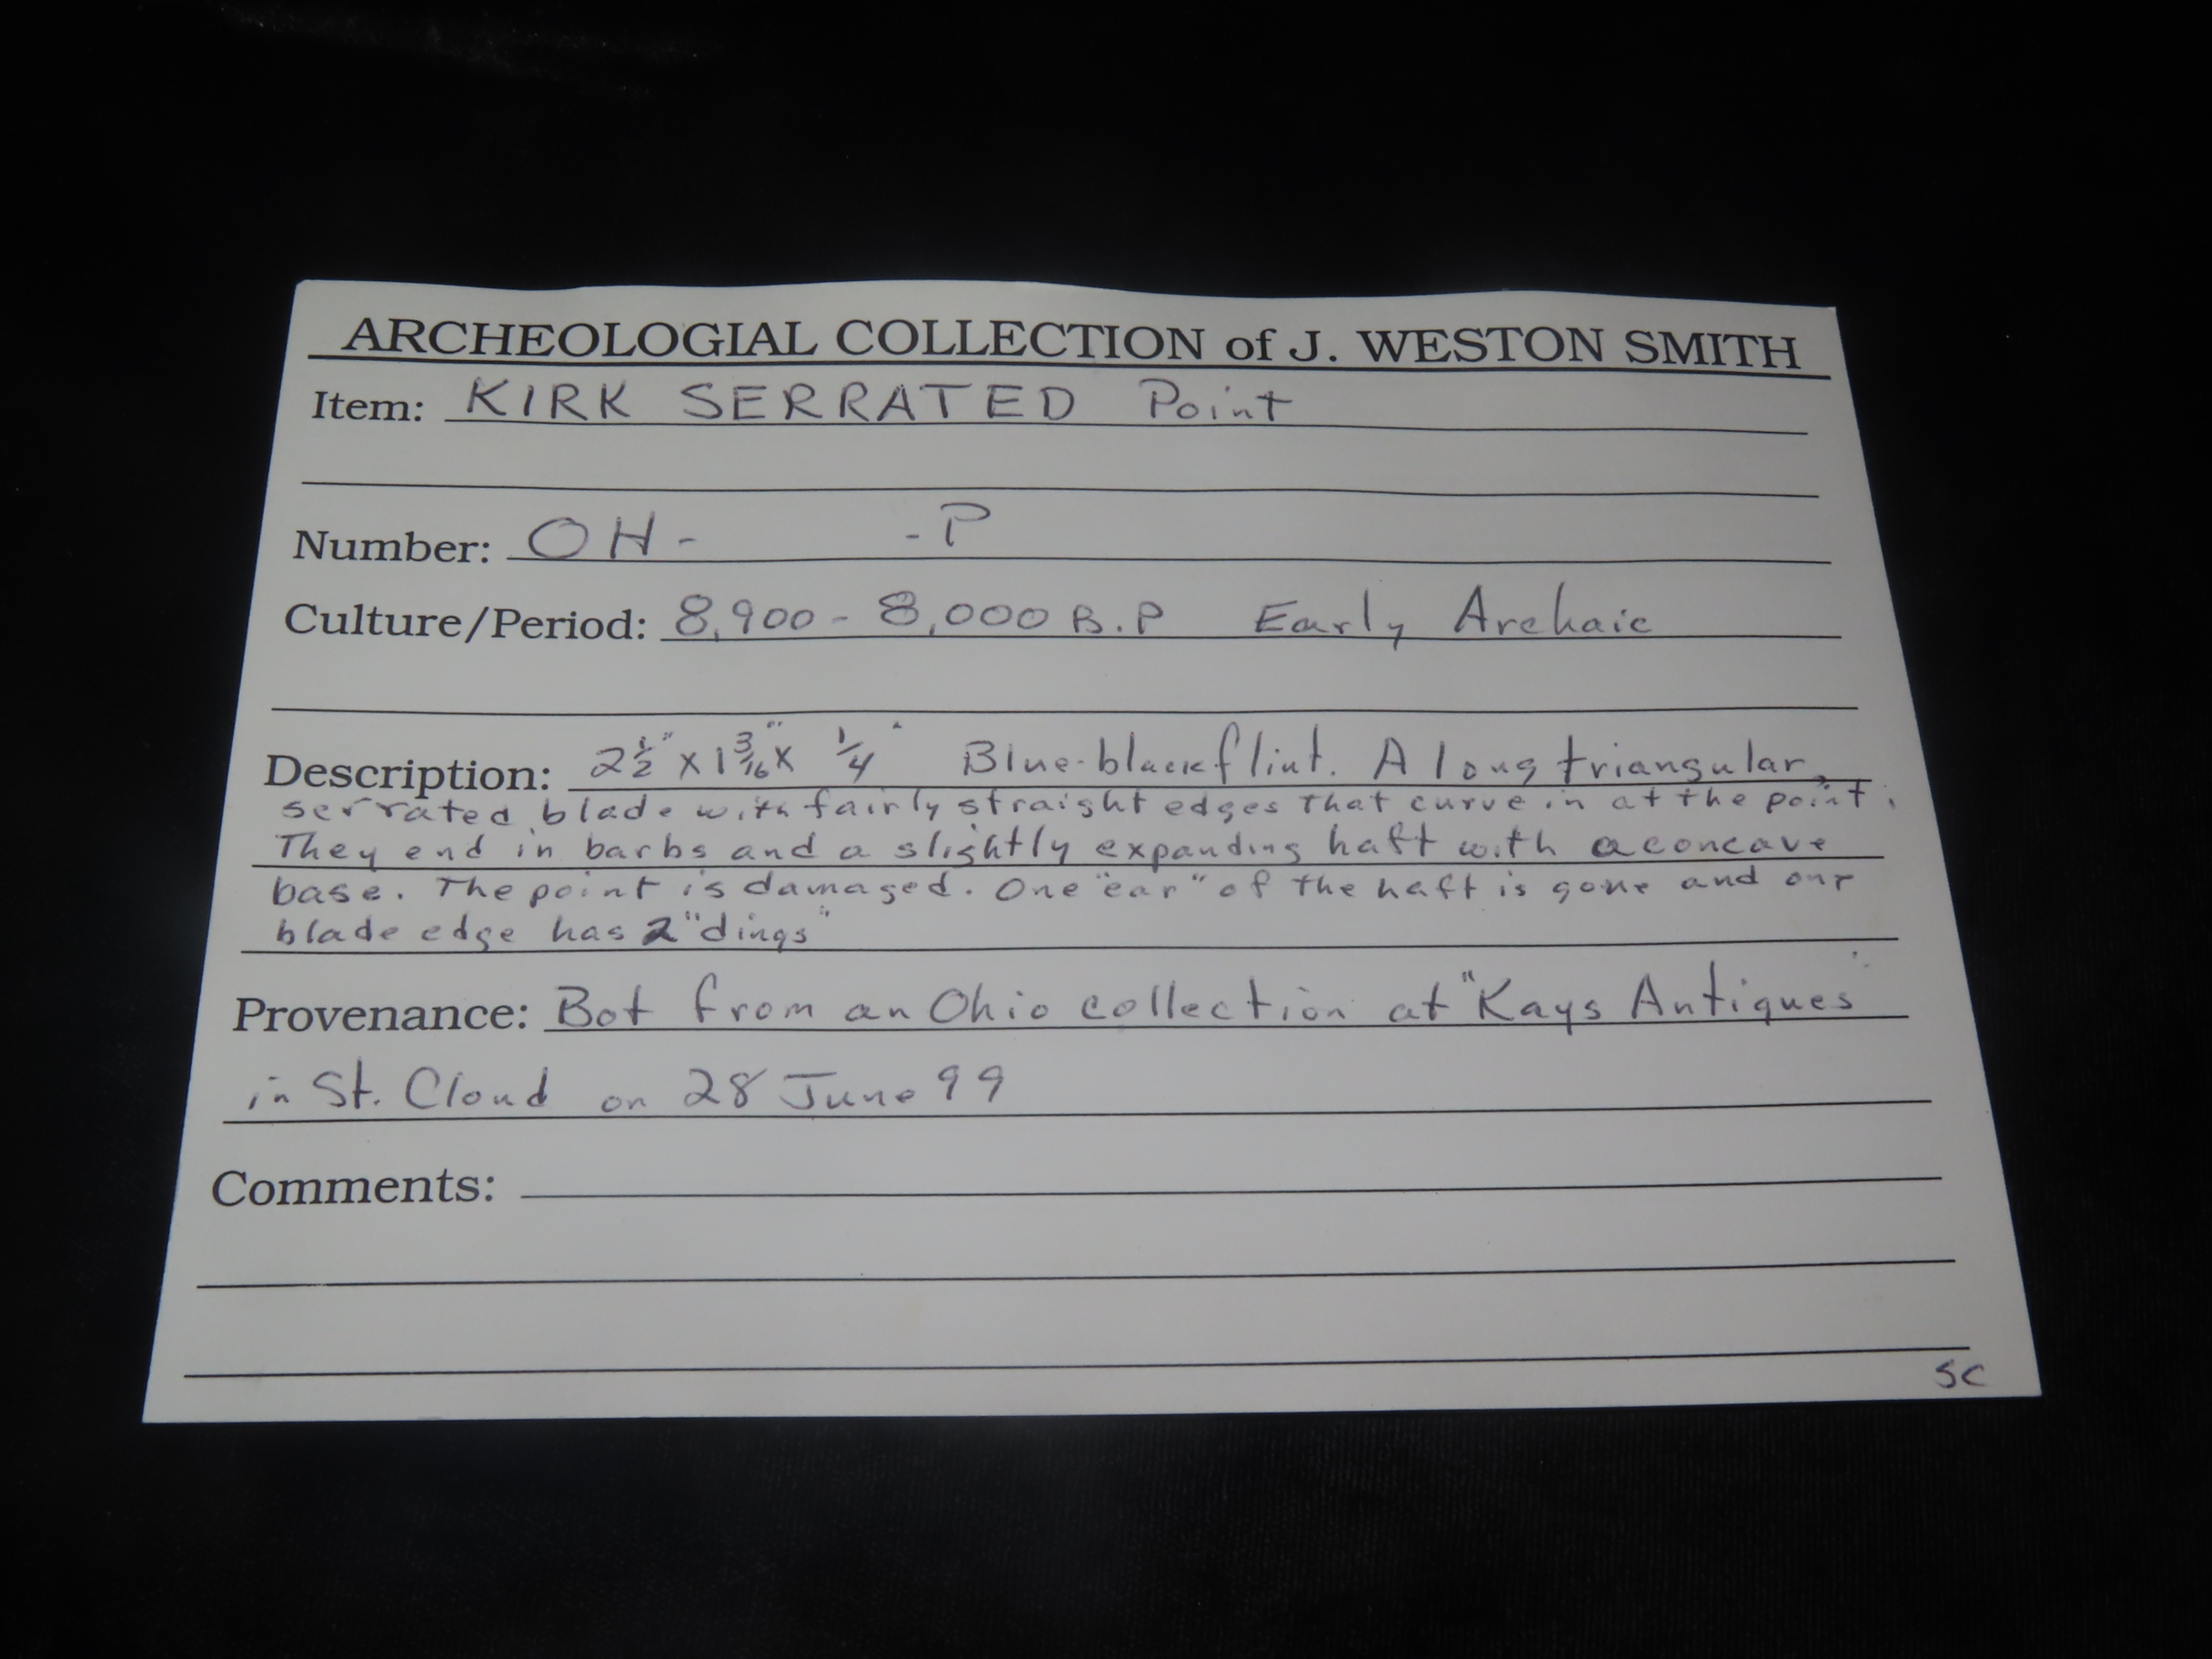 ARCHEOLOGIAL COLLECTION of J. WESTON SMITH
Item: KIRK SERRATED Point
Number: OH- -P
Culture/Period: 8,900 - 8,000 B.P Early Archaic
Description: 2 1/2" x 1 3/16" x 1/4" Blue-black flint. A long triangular,
serrated blade with fairly straight edges that curve in at the point.
They end in barbs and a slightly expanding haft with a concave
base. The point is damaged. One "ear" of the haft is gone and one
blade edge has 2 "dings"
Provenance: Bot from an Ohio collection at "Kays Antiques"
in St. Cloud on 28 June 99
Comments:
SC